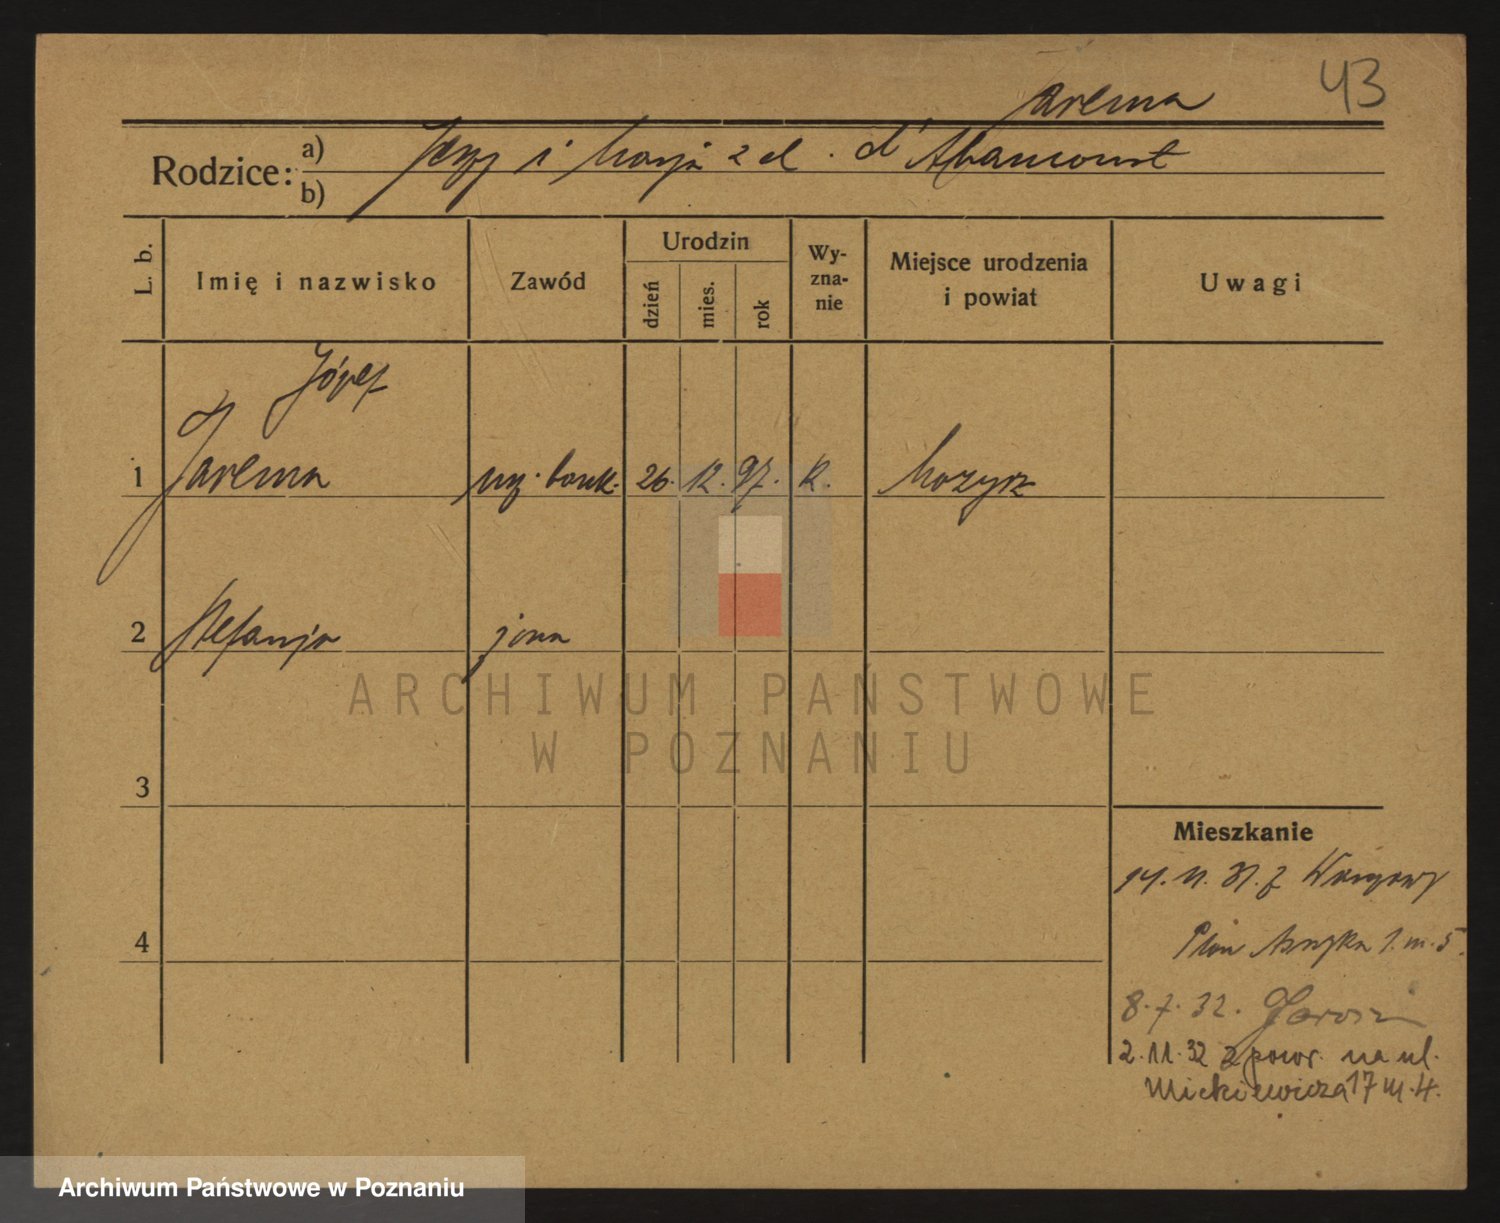 43
Jarema
Rodzice: a) Jerzy i Marja z d. d'Abancourt
b)
L. b.
Imię i nazwisko
Zawód
Urodzin
dzień
mies.
rok
Wy-
zna-
nie
Miejsce urodzenia
i powiat
Uwagi
Józef
1 Jarema urz. bank. 26. 12. 97. k. Mozyrz
2 Stefanja żona
ARCHIWUM PAŃSTWOWE
W POZNANIU
3
Mieszkanie
14. 11. 31. z Warszawy
4
1. m. 5.
8. 7. 32.
2. 11. 32 z powr. na ul.
Mickiewicza 17 m. 4.
Archiwum Państwowe w Poznaniu